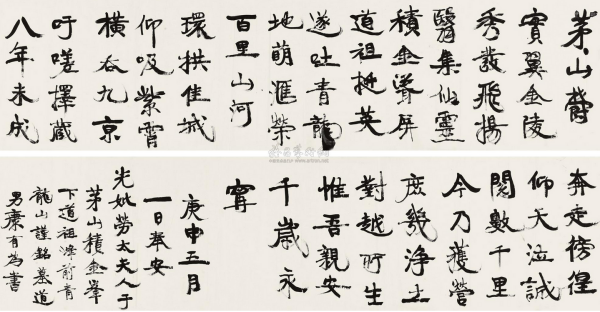 茅山鬱
實翼金陵
秀發飛揚
翳集仙靈
積金聳屏
道祖挺英
遂吐青龍
地萌滙榮
百里山河
環拱佳城
仰吸紫霄
橫九京
吁嗟擇藏
八年未成
奔走徬徨
仰天泣誠
閱數千里
今乃獲營
庶幾淨土
對越所生
惟吾親安
千歲永
寧
庚申五月
一日奉安
先妣勞太夫人于
茅山積金峯
下道祖峰前青
龍山謹銘墓道
男康有為書